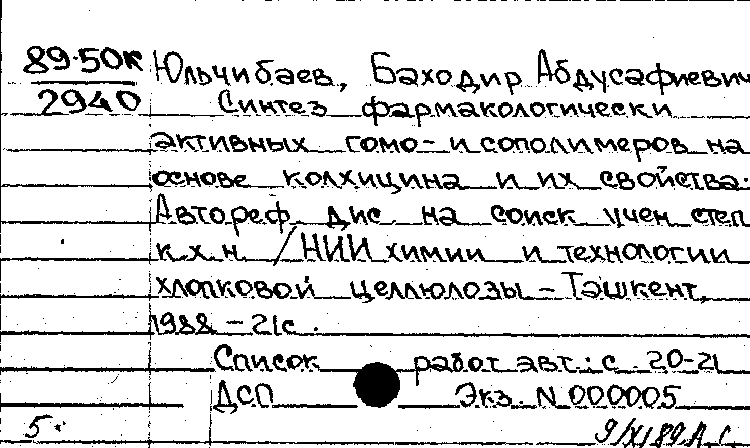 89-50к Юльчибаев, Баходир Абдусафиевич
2940 Синтез фармакологически
активных гомо- и сополимеров на
основе колхицина и их свойства:
Автореф. дис. на соиск. учен. степ.
к.х.н. / НИИ химии и технологии
хлопковой целлюлозы - Ташкент,
1988 - 21с.
Список работ авт.: с. 20-21
ДСП Экз. N 000005
5к 9/XI 89 А.С.